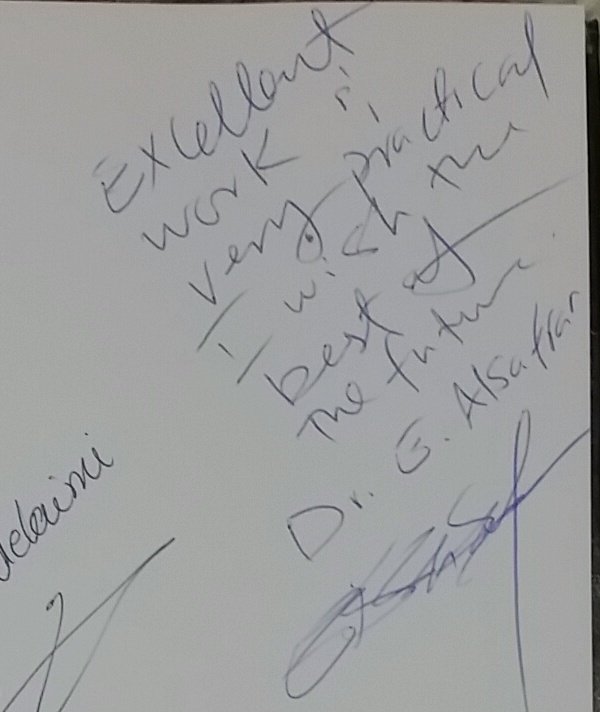 Excellent
work is
very practical
I wish the
best of
the future.
Dr. E. Alsafran